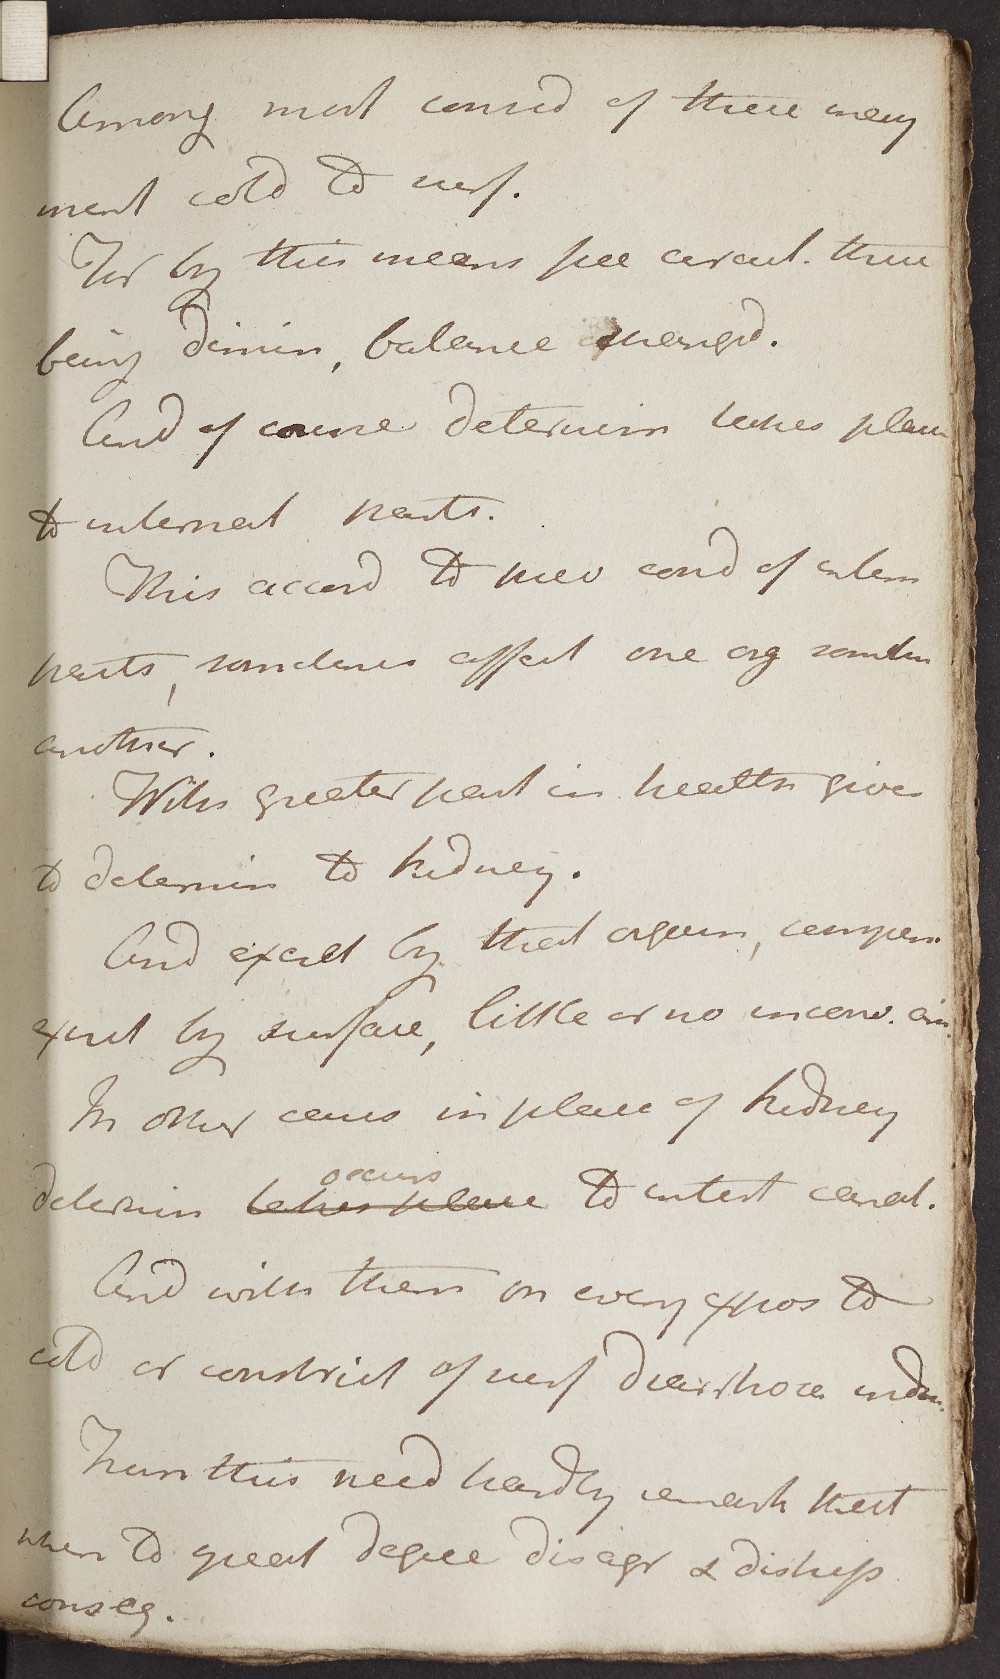 Among most consid of these may
ment cold to surf.
For by this means free circul. there
being dimin, balance chang'd.
And of course determin takes place
to internal parts.
This accord to prev cond of intern
parts, sometimes affect one org sometim
another.
With greater part in health gives
to determin to kidney.
And excret by that organ, compen.
excret by surface, little or no inconv.
In other cases in place of kidney
determin occurs to intest canal.
And with them on every expos to
cold or constrict of surf diarrhoea induc.
From this need hardly remark that
when to great degree disagr & distress
conseq.